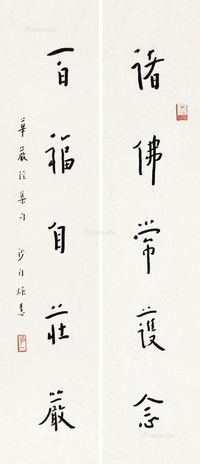 諸佛常護念
百福自莊嚴
華嚴經集句